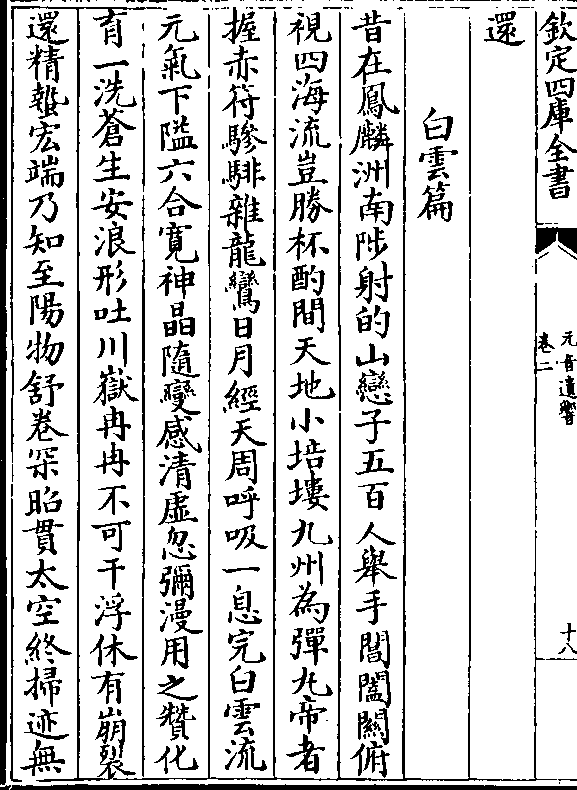 欽定四庫全書
元音遺響
卷二
十八
還
白雲篇
昔在鳳麟洲南陟射的山戀子五百人舉手閶闔關俯
視四海流豈勝杯酌間天地小培塿九州為彈丸帝者
握赤符驂騑雜龍鸞日月經天周呼吸一息完白雲流
元氣下隘六合寛神晶隨變感清虛忽彌漫用之贊化
育一洗蒼生安浪形吐川嶽冉冉不可干浮休有崩裂
還精蟄宏端乃知至陽物舒卷罙昭貫太空終掃迹無